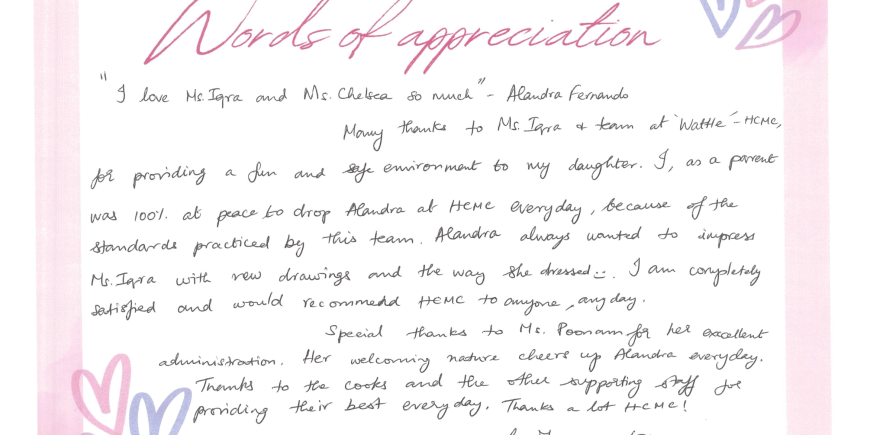 Words of appreciation
"I love Ms. Iqra and Ms. Chelsea so much" - Alandra Fernando
Many thanks to Ms. Iqra & team at 'Wattle' - HCMC,
for providing a fun and safe environment to my daughter. I, as a parent
was 100% at peace to drop Alandra at HCMC everyday, because of the
standards practiced by this team. Alandra always wanted to impress
Ms. Iqra with new drawings and the way she dressed :). I am completely
satisfied and would recommend HCMC to anyone, any day.
Special thanks to Ms. Poonam for her excellent
administration. Her welcoming nature cheers up Alandra everyday.
Thanks to the cooks and the other supporting staff for
providing their best everyday. Thanks a lot HCMC!